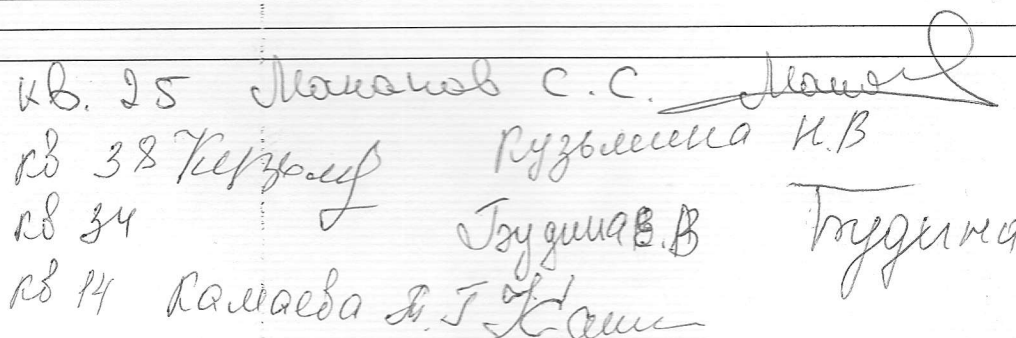 кв. 25 Маканов С. С.
кв 38 Кузьмина Н.В
кв 34 Будина В.В Будина
кв 14 Камаева Т.Г